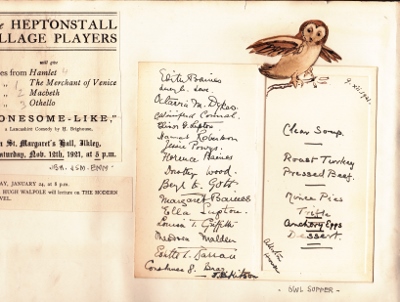 HEPTONSTALL
LLAGE PLAYERS
will give
es from Hamlet 4
" The Merchant of Venice
" 2 Macbeth
" 3 Othello
ONESOME-LIKE,"
a Lancashire Comedy by H. Brighouse,
n St. Margaret's Hall, Ilkley,
aturday, Nov. 12th, 1921, at 8 p.m.
AY, JANUARY 24, at 8 p.m.
HUGH WALPOLE will lecture on THE MODERN
VEL.
Edith Baines
Lucy E. Love.
Octavia M. Dykes
Winifred
Elinor G. Lupton.
Robertson
Jessie Powys.
Florence Baines
Dorothy Wood.
Beryl K. Gott
Margaret
Ella Lupton.
Louisa T. Griffith
Malden
Edith L.
9. xii. 1921.
Clear Soup.
Roast Turkey
Pressed Beef.
Mince Pies
Trifle
Anchovy Eggs
Dessert.
OWL SUPPER